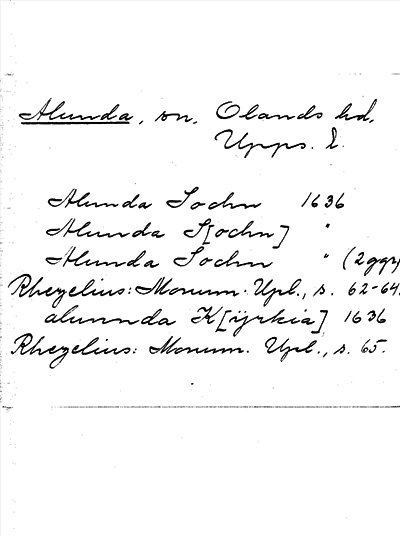 Alunda, sn, Olands hd,
Upps. l.
Alunda Sochn 1636
Alunda S[ochn] "
Alunda Sochn " (2ggr)
Rhezelius: Monum. Upl., s. 62-64.
alunnda K[ijrkia] 1636
Rhezelius: Monum. Upl., s. 65.